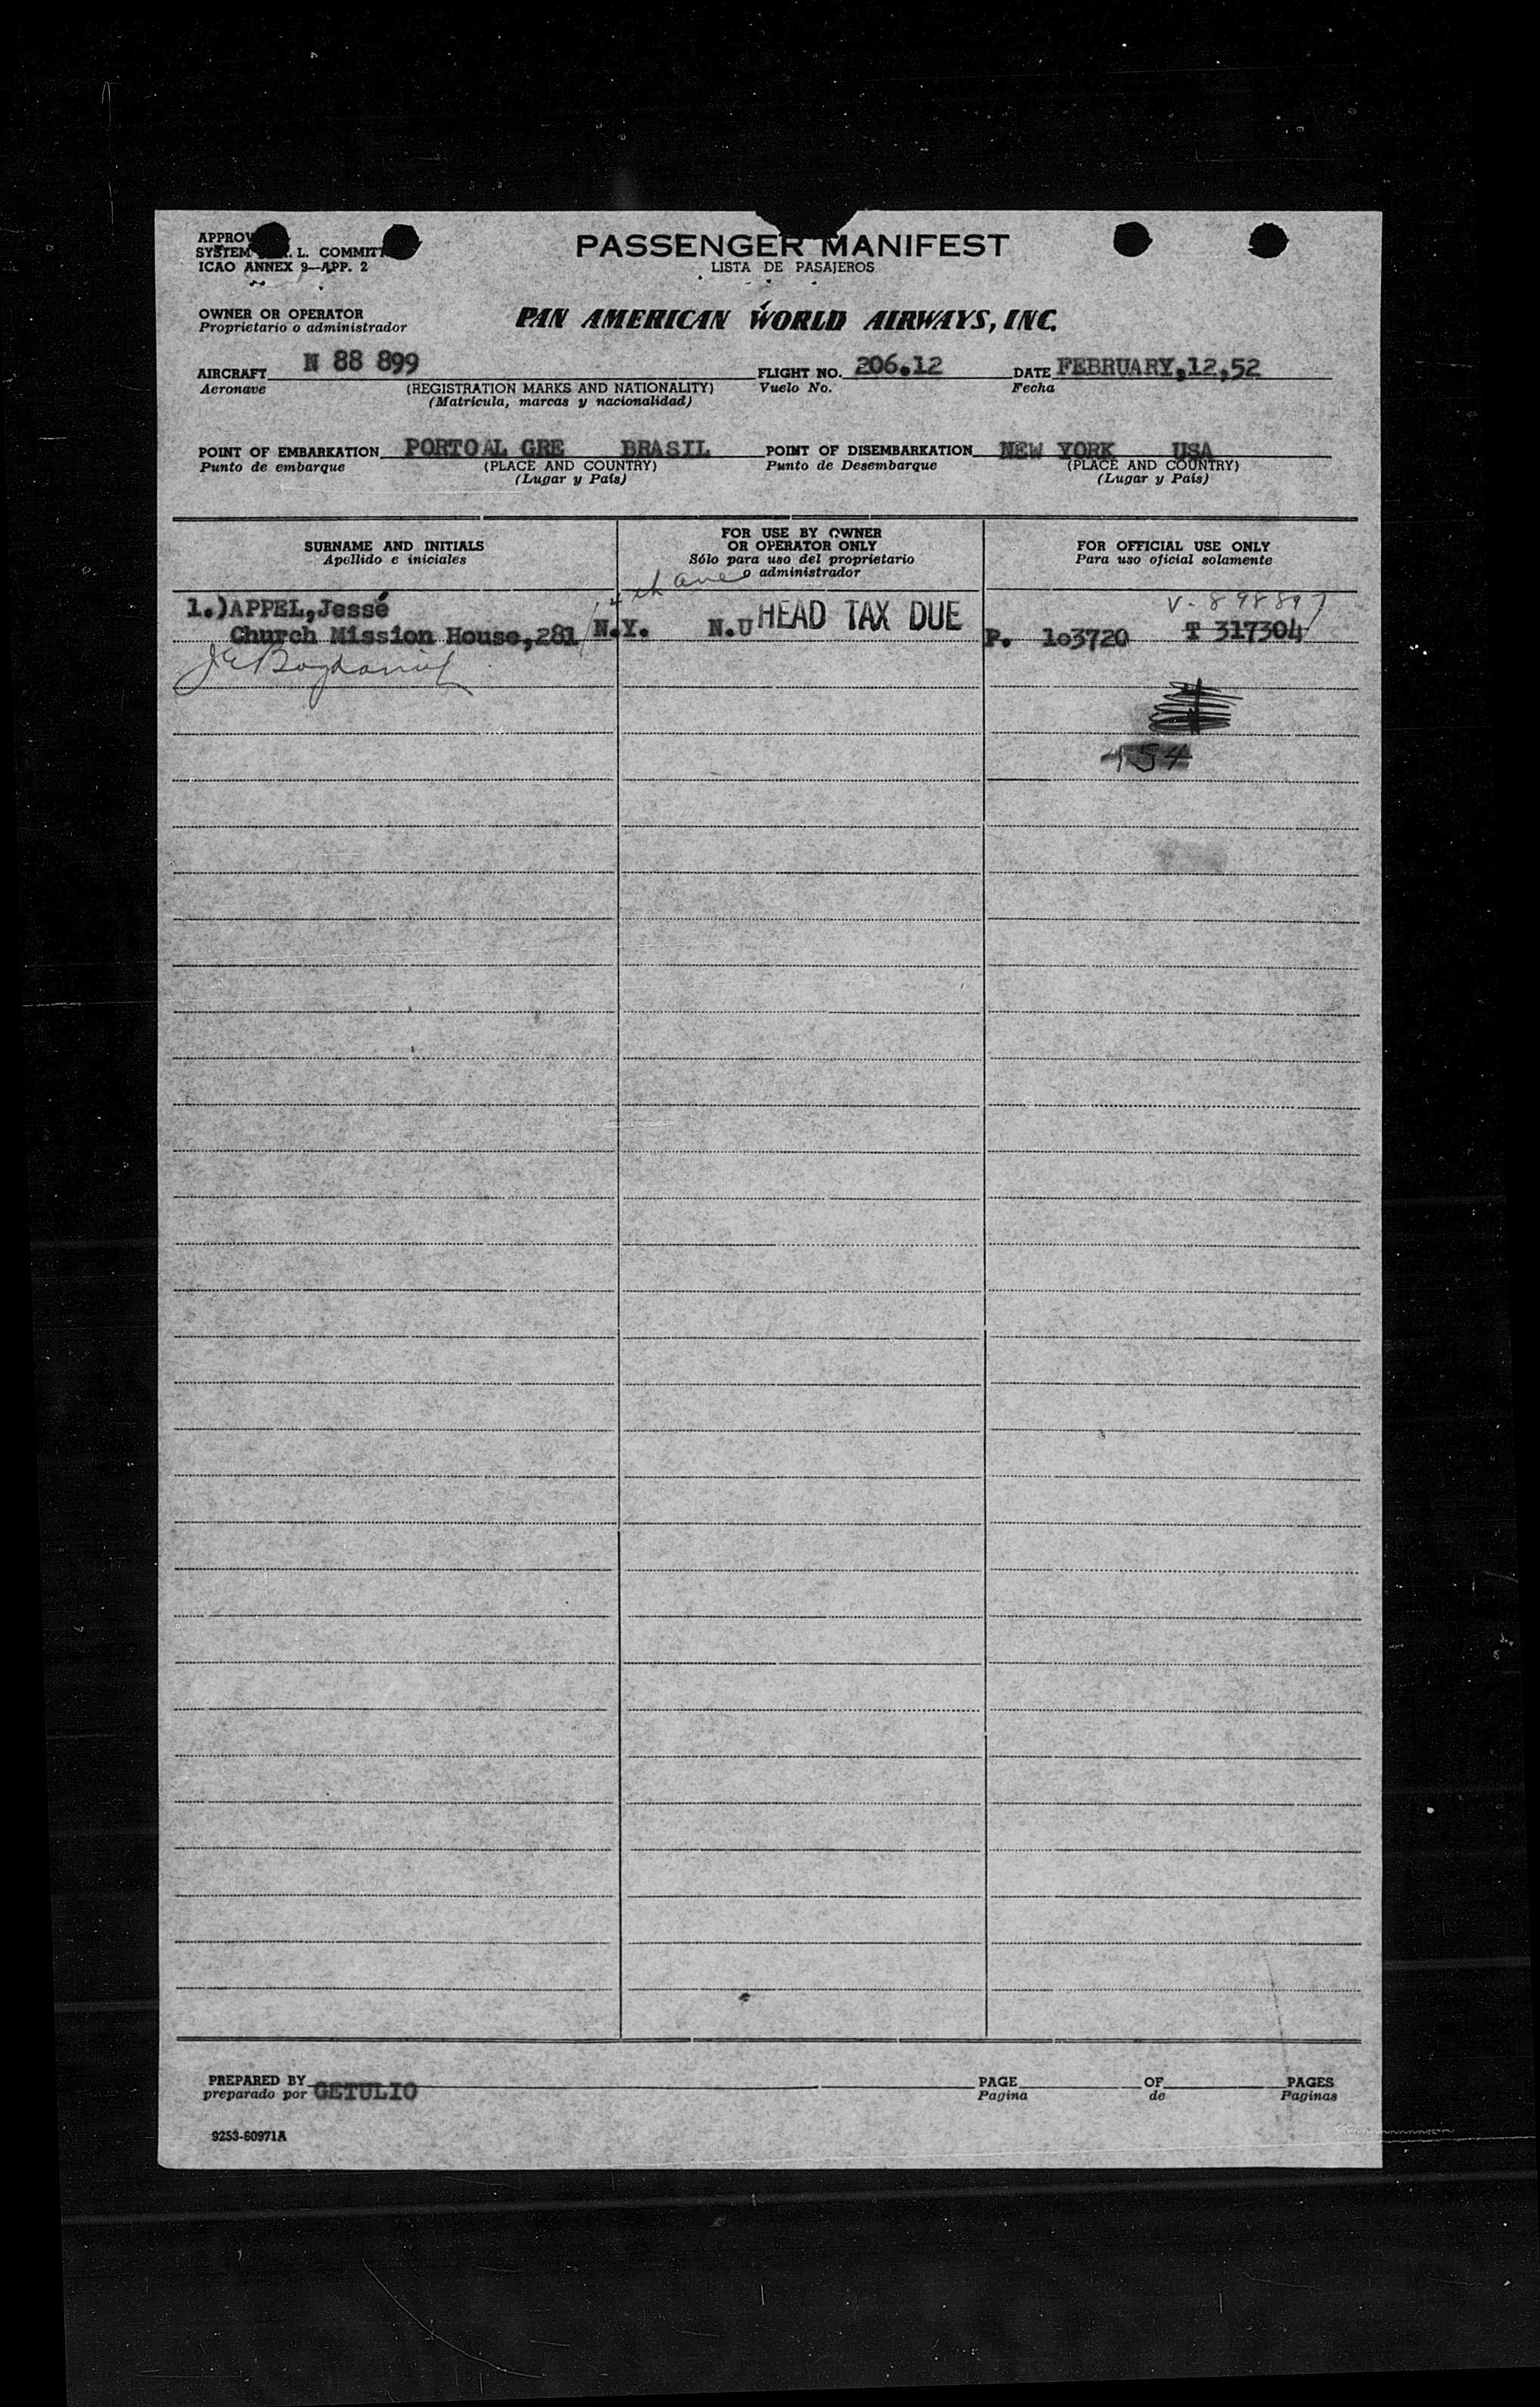 PASSENGER MANIFEST
LISTA DE PASAJEROS
ICAO ANNEX 9—APP. 2
OWNER OR OPERATOR
Proprietario o administrador
PAN AMERICAN WORLD AIRWAYS, INC.
AIRCRAFT N 88 899 FLIGHT NO. 206.12 DATE FEBRUARY,12,52
Aeronave (REGISTRATION MARKS AND NATIONALITY) Vuelo No. Fecha
(Matrícula, marcas y nacionalidad)
POINT OF EMBARKATION PORTOAL GRE BRASIL POINT OF DISEMBARKATION NEW YORK USA
Punto de embarque (PLACE AND COUNTRY) Punto de Desembarque (PLACE AND COUNTRY)
(Lugar y País) (Lugar y País)
SURNAME AND INITIALS
Apellido e iniciales
FOR USE BY OWNER
OR OPERATOR ONLY
Sólo para uso del proprietario
o administrador
FOR OFFICIAL USE ONLY
Para uso oficial solamente
4th ave
1.)APPEL,Jessé HEAD TAX DUE V-898897
Church Mission House,281 N.Y. N.U P. 1o3720 T 317304
54
PREPARED BY PAGE OF PAGES
preparado por GETULIO Pagina de Paginas
9253-60971A